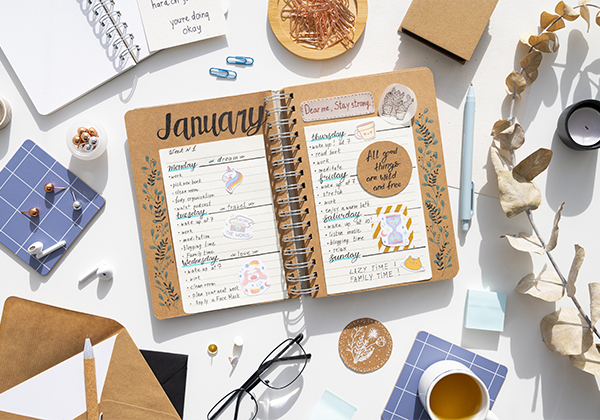 hard on yo
you're doing
okay
January
Week N1
monday
dream
• work
• pick new book
• clean room
• body organisation
tuesday
• wake up at 7
• work
• meditation
• blogging time
• Family time
travel
Wednesday
love
• wake up at 7
• work
• clean room
• plan your next week
• Apply a Face Mask
Dear me, Stay strong.
thursday
• wake up at 7
• read book
• work
• meditate
friday
• wake up at 7
• stretch
• work
• enjoy a warm bath
saturday
• wake up at 10
• listen music
• blogging time
• relax
sunday
LAZY TIME !
FAMILY TIME !
All good
things
are wild
and free